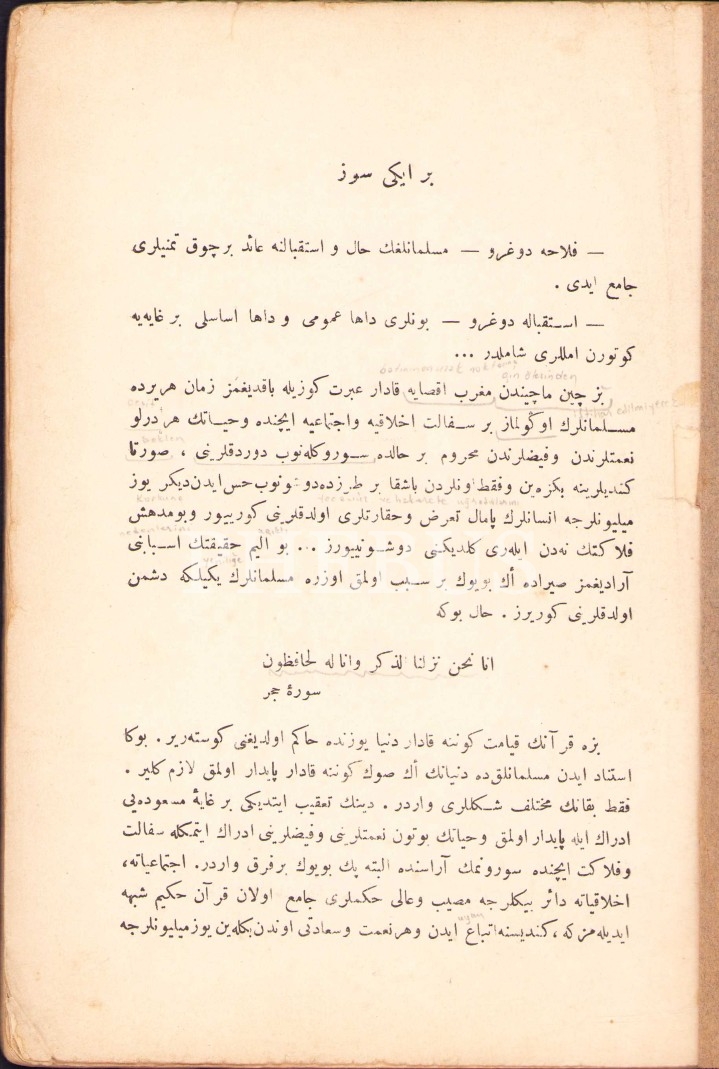 بر ایکی سوز
— فلاحه دوغرو — مسلمانلغك حال و استقبالنه عائد برچوق تمنیلری
جامع ایدی .
— استقباله دوغرو — بونلری داها عمومی و داها اساسلی بر غایه‌یه
كوتورن امللری شاملدر ...
çin
بز چین ماچیندن مغرب اقصایه قادار عبرت كوزیله باقدیغمز زمان هریرده
مسلمانلرك اوڭولماز بر سفالت اخلاقیه واجتماعیه ایچنده وحیاتك هر درلو
نعمتلرندن وفیضلرندن محروم بر حالده سوروكله‌نوب دوردقلرینی ، صورتا
كندیلرینه بكزه‌ین وفقط اونلردن باشقا بر طرزده‌دوشونوب‌حس‌ایدن‌دیكر یوز
میلیونلرجه انسانلرك پامال تعرض وحقارتلری اولدقلرینی كورییور وبومدهش
فلاكتك نه‌دن ایله‌ری كلدیكنی دوشونییورز ... بو الیم حقیقتك اسبابنی
آرادیغمز صیراده اڭ بویوك بر سبب اولمق اوزره مسلمانلرك یكیلكه دشمن
اولدقلرینی كوریرز . حال بوكه
انا نحن نزلنا الذكر وانا له لحافظون
سورۀ حجر
بزه قرآنك قیامت كوننه قادار دنیا یوزنده حاكم اولدیغنی كوسته‌ریر . بوكا
استناد ایدن مسلمانلق‌ده دنیانك اڭ صوك كوننه قادار پایدار اولمق لازم كلیر .
فقط بقانك مختلف شكللری واردر . دینك تعقیب ایتدیكی بر غایۀ مسعوده‌یی
ادراك ایله پایدار اولمق وحیاتك بوتون نعمتلرینی وفیضلرینی ادراك ایتمكله سفالت
وفلاكت ایچنده سورونمك آراسنده البته پك بویوك برفرق واردر. اجتماعیاته،
اخلاقیاته دائر بیكلرجه مصیب وعالی حكملری جامع اولان قرآن حكیم شبهه
uyan
ایدیله‌مز كه ، كندیسنه اتباغ ایدن وهرنعمت وسعادتی اوندن بكله‌ین یوزمیلیونلرجه